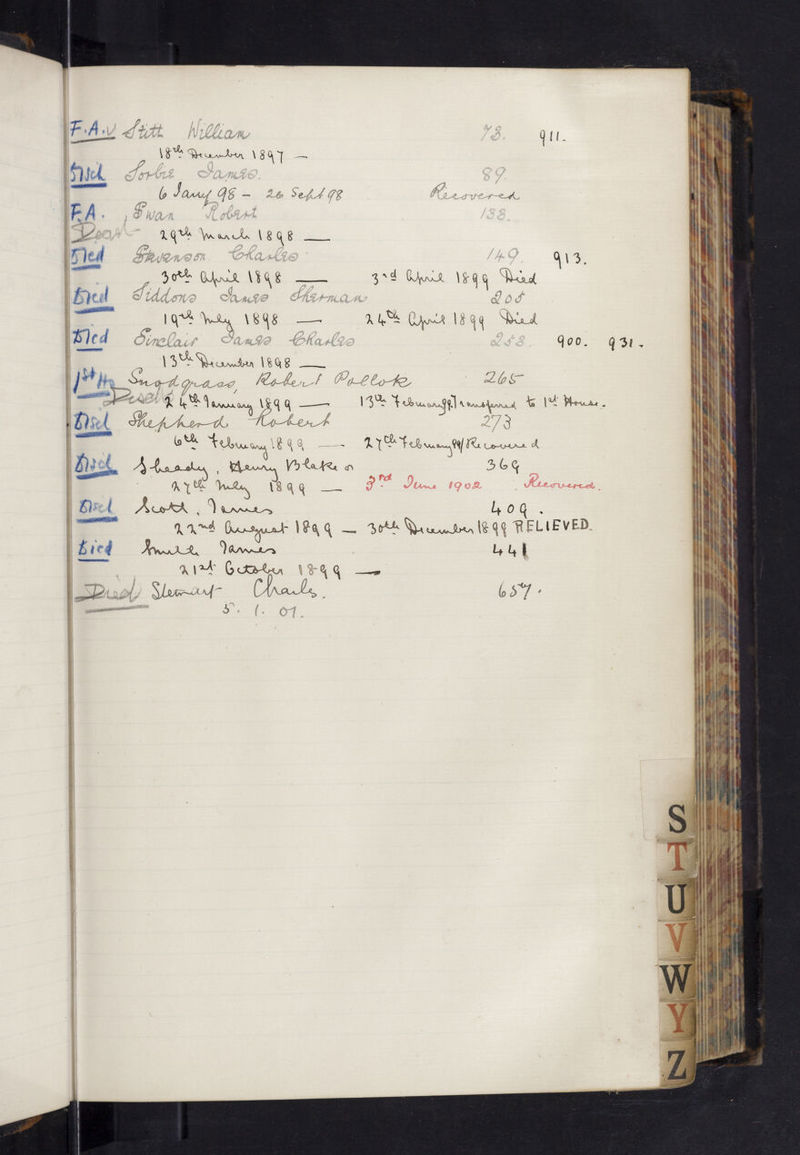 F.A. Stitt William 73. 911.
18th December 1897 —
Disch Sorbie James. 89.
6 Jany 98 – 26 Sept 98 Recovered
F.A. Swan Robert 138.
29th March 1898 —
Died Stevenson Charles 149. 913.
30th April 1898 — 3rd April 1899 Died
Died Siddons James Sherman 205
19th July 1898 — 24th April 1899 Died
Died Sinclair James Charles 253. 900. 931.
13th December 1898 —
1st Ho Snodgrass, Robert Pollok 265
24th January 1899 — 13th February 99 Transferred to 1st House.
Disd Shepherd Robert 273
6th February 1899 — 27th February 99 Recovered
Disd Sheady, Henry Blake 369
27th July 1899 — 3rd June 1902 Recovered.
Disd Scott, James 409.
22nd August 1899 — 30th December 1899 RELIEVED.
Died Smith James 441
21st October 1899 —
Died Stewart Charles. 657.
5. 1. 01.
S
T
U
V
W
Y
Z